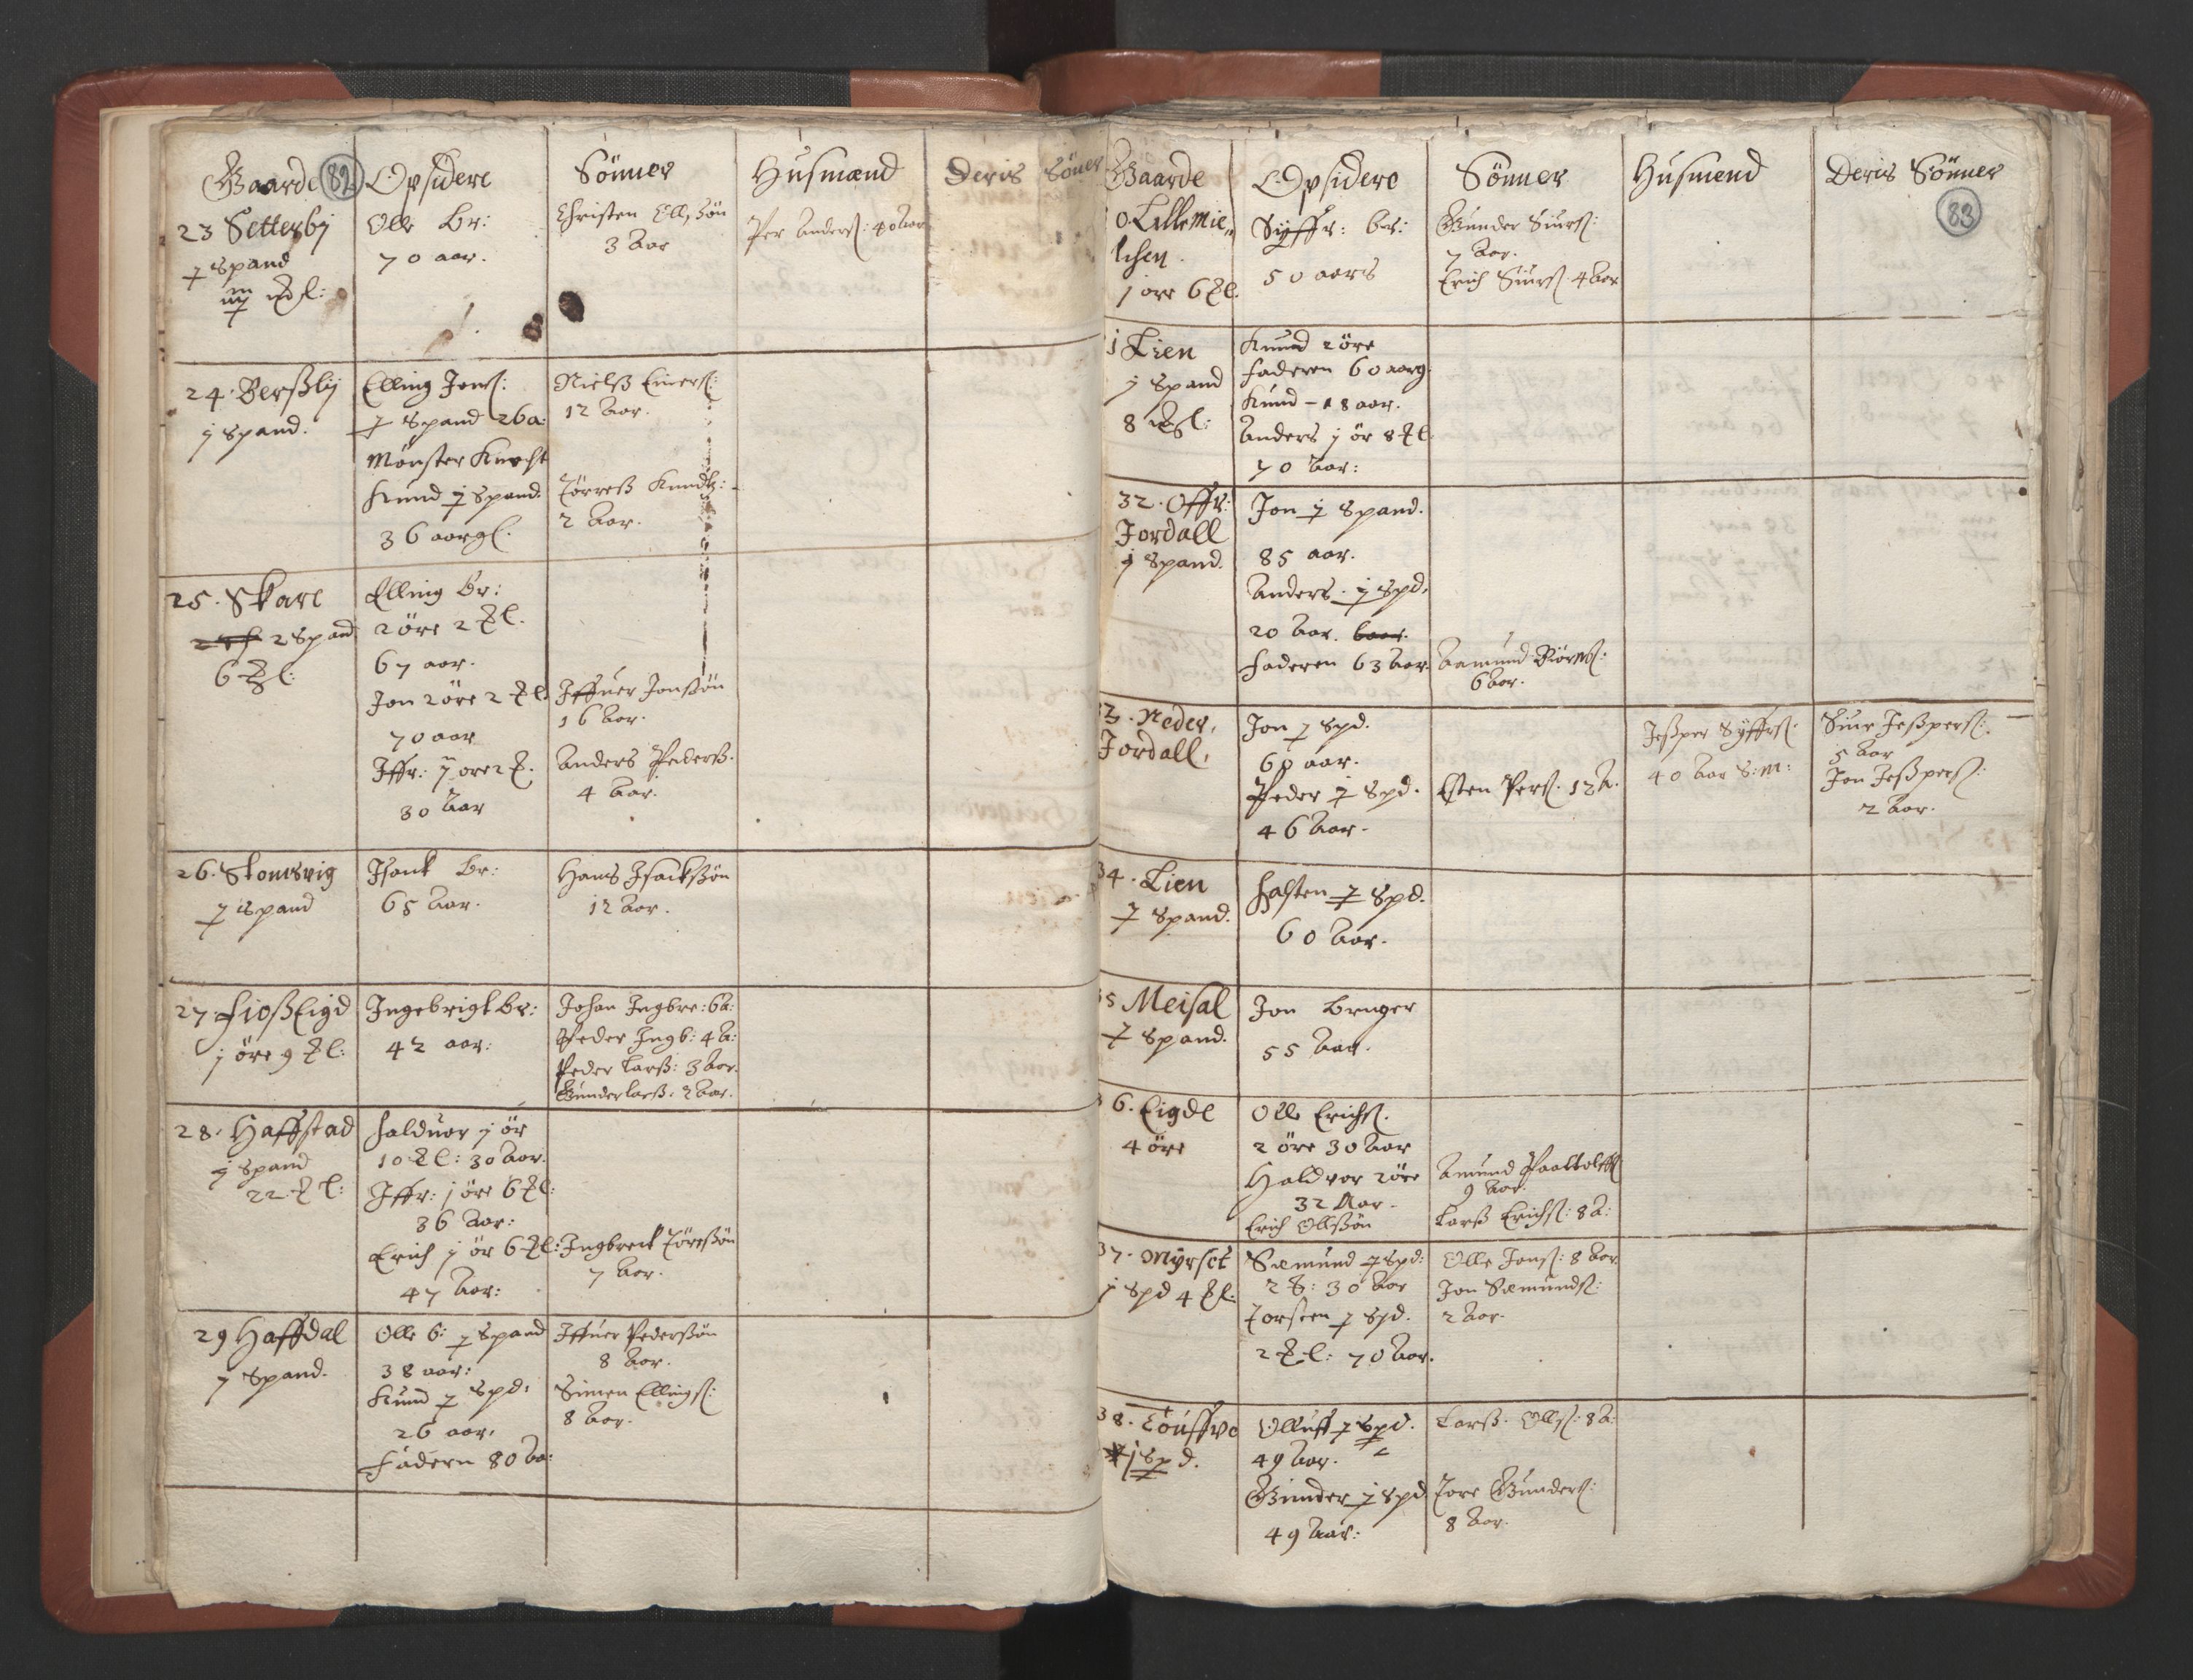 Gaarde 82 Opsidere Sönner Husmænd Deris Söner
23 Setterbÿ
Spand
Olle Br:
70 aar.
Christen Olls Sön
3 Aar
Per Anders: 40 Aar
24. Berßlÿ
j Spand.
Elling Jons:
Spand 26 a:
Mönster Knecht
Knud Spand.
36 aargl.
Nielß Einers:
12 Aar.
Törreß Knudß:
2 Aar.
25. Skare
2 Spand
6 ℔l:
Elling Br:
2 öre 2 ℔l.
67 aar.
Jon 2 öre 2 ℔l.
70 aar
Iffr: öre 2 ℔.
30 Aar
Iffuer Jonßön
16 Aar.
Anders Pederß.
4 Aar.
26. Stomsvig
Spand
Isack Br:
65 Aar.
Hans Isackßön
12 Aar.
27 Fioßeigd
j öre 9 ℔l:
Ingebrigt Br:
42 aar:
Johan Ingbre: 6 A:
Peder Ingb: 4 A:
Peder Larß: 3 Aar.
Gunder Larß. 2 Aar.
28. Haffstad
j Spand
22 ℔l:
Halduor j ör
10 ℔l: 30 Aar.
Iffr: j öre 6 ℔l:
36 Aar:
Erich j ör 6 ℔l:
47 Aar:
Ingbreck Töreßön
7 Aar.
29 Haffdal
Spand.
Olle B: Spand
38 aar:
Knud Spd:
26 aar.
Fadern 80 Aa:
Iffuer Pederßön
8 Aar.
Simen Ellings:
8 Aar.
Gaarde Opsidere Sönner Husmend Deris Sönner
83
0. Lillemie
lhen
j öre 6 ℔l.
Syffr: br:
50 aars
Gunder Siurs:
7 Aar.
Erich Siurs 4 Aar
1 Lien
j Spand
8 ℔l:
Knud 2 öre
Faderen 60 aarg.
Knud - 18 aar.
Anders j ör 8 ℔l
70 Aar:
32. Offr:
Jordall
j Spand.
Jon Spand.
85 aar.
Anders. Spd.
20 Aar.
Faderen 63 Aar.
Aamund Biörns:
6 Aar.
3. Neder,
Jordall,
Jon Spd.
60 aar.
Peder Spd.
46 Aar.
Esten Pers. 12 A.
Jeßper Syffrs:
40 Aar S: M:
Siur Jeßpers:
5 Aar
Jon Jeßpers:
2 Aar.
34. Lien
Spand.
Halsten Spd.
60 Aar.
35 Meisal
Spand.
Jon Bruger
55 Aar.
6. Eigde
4 öre
Olle Erichs.
2 öre 30 Aar
Haldvor 2 öre
32 Aar.
Erich Ollßön
Amund Paalls
9 Aar.
Larß Erichs: 8 A:
37. Myrset
j Spd 4 ℔l.
Sæmund Spd:
2 ℔: 30 Aar
Torsten Spd.
2 ℔l: 70 Aar.
Olle Jons: 8 Aar
Jon Sæmunds:
2 Aar.
38. Touffve
j Spd.
Olluff Spd.
49 Aar.
Gunder Spd
49 Aar:
Larß. Olls: 8 A:
Tore Gunders:
8 Aar.